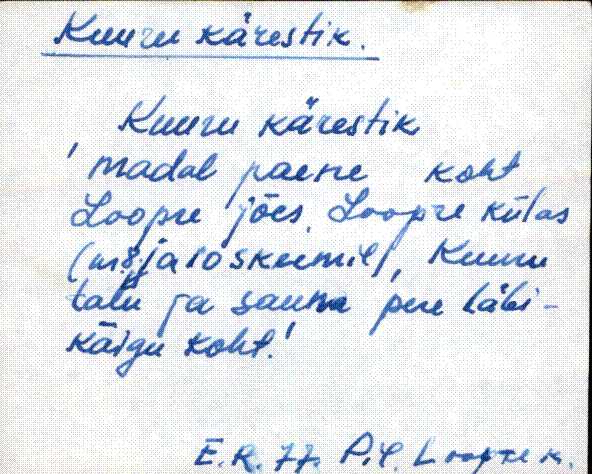 Kuuru kärestik.
Kuuru kärestik
' madal paene koht
Loopre jões, Loopre külas
(nr 8 ja 10 skeemil), Kuuru
talu ja sauna pere läbi-
käigu koht.'
E.R. 77. P.-J. Loopre k.